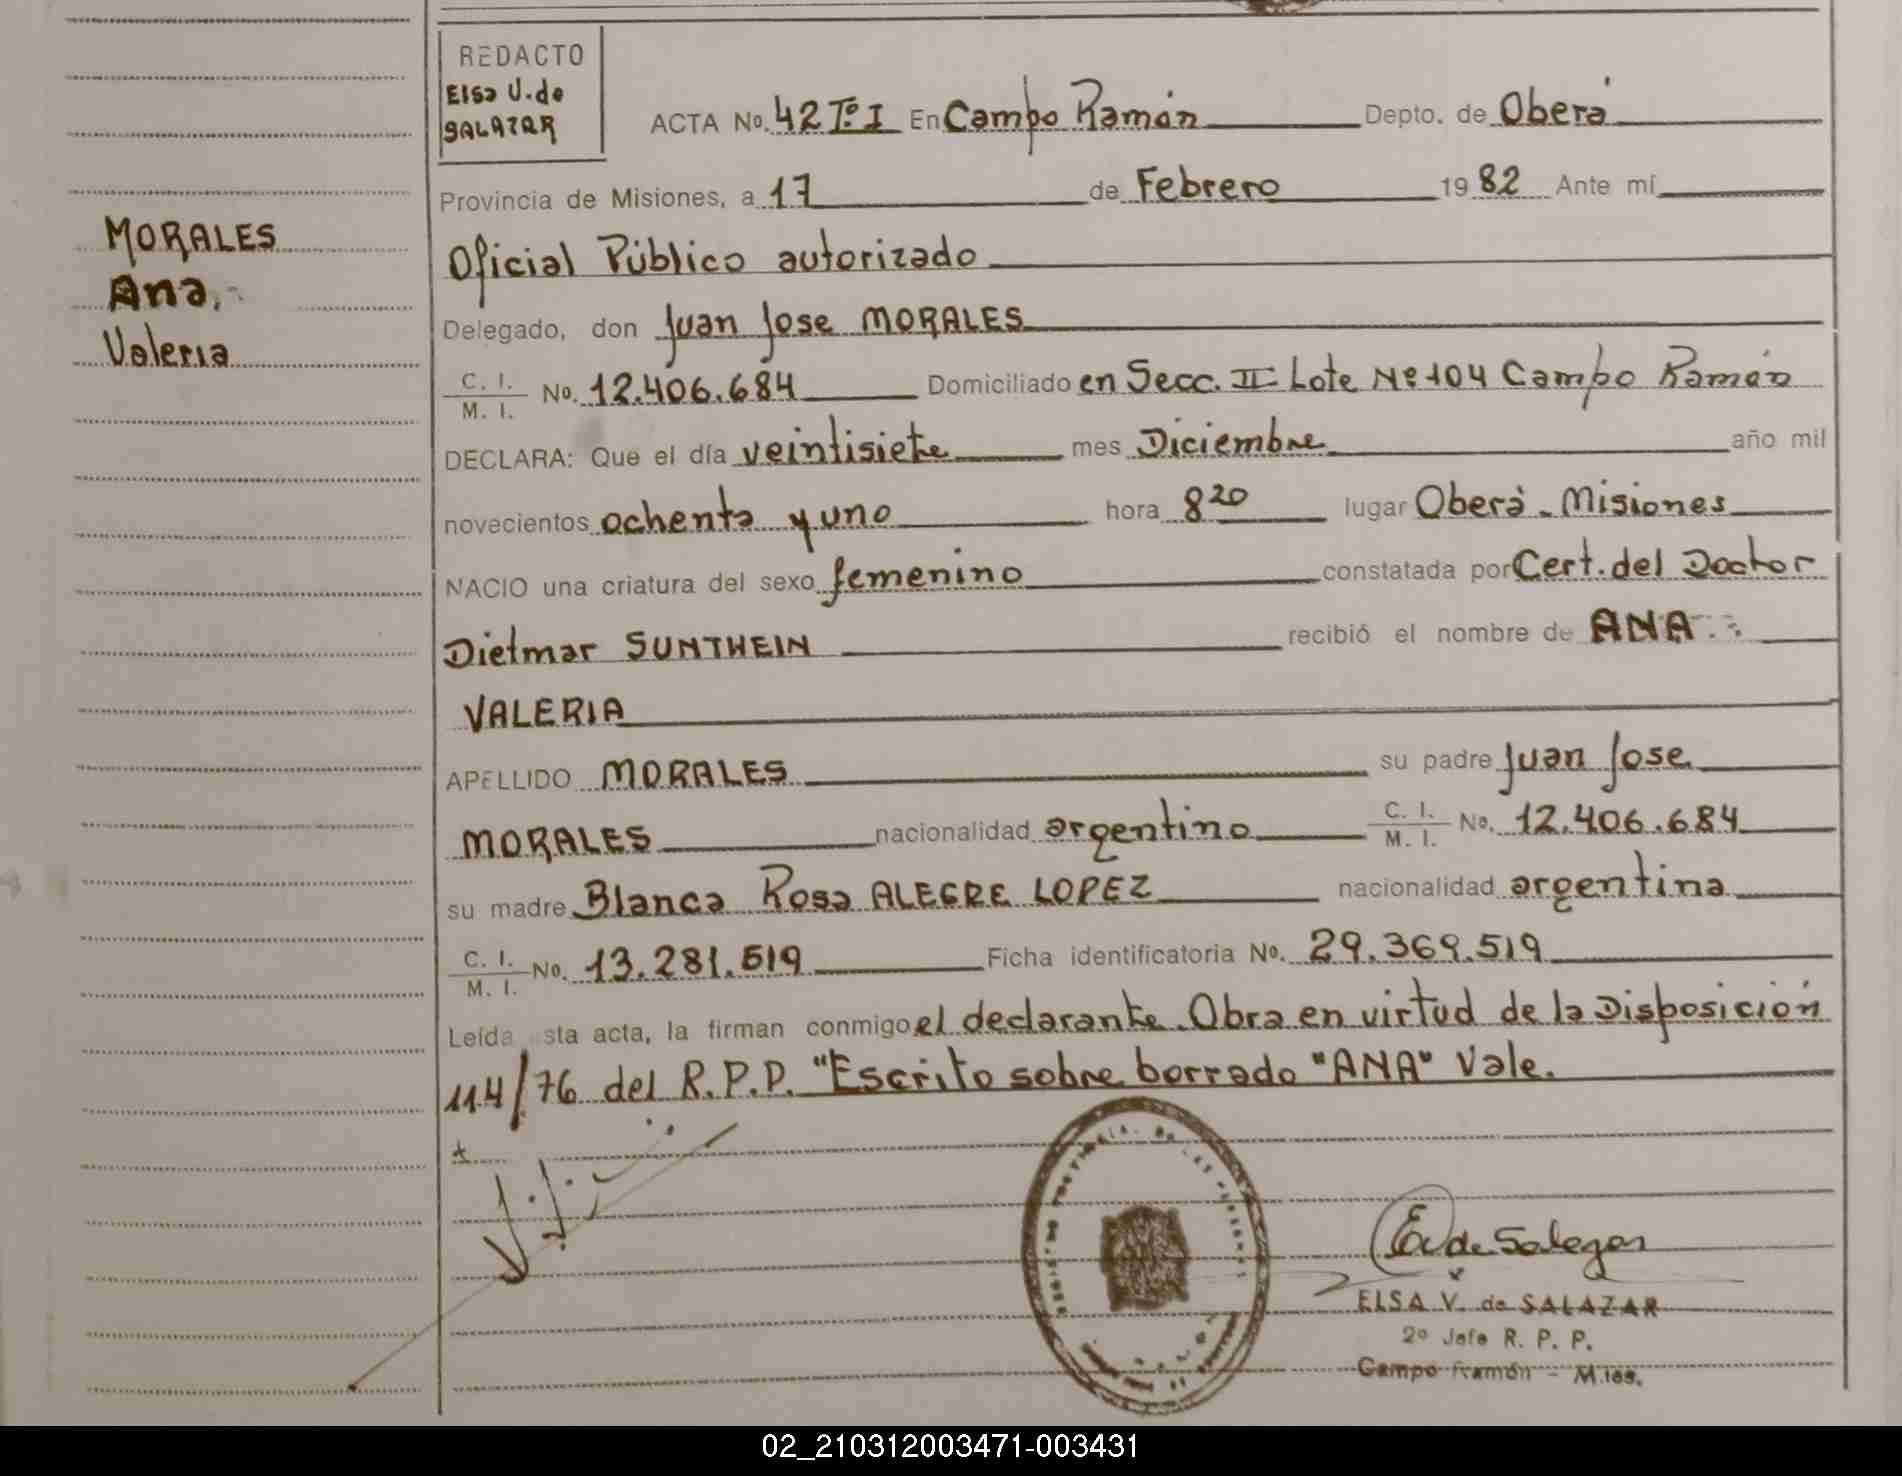 REDACTO
Elsa V. de
SALAZAR
ACTA No. 42 Tº I En Campo Ramón Depto. de Oberá
Provincia de Misiones, a 17 de Febrero 1982 Ante mí
Oficial Público autorizado
Delegado, don Juan Jose MORALES
C. I. / M. I. No. 12.406.684 Domiciliado en Secc. II Lote Nº 104 Campo Ramón
DECLARA: Que el día veintisiete mes Diciembre año mil
novecientos ochenta y uno hora 8 20 lugar Oberá - Misiones
NACIO una criatura del sexo femenino constatada por Cert. del Doctor
Dietmar SUNTHEIN recibió el nombre de ANA
VALERIA
APELLIDO MORALES su padre Juan Jose
MORALES nacionalidad argentino C. I. / M. I. No. 12.406.684
su madre Blanca Rosa ALEGRE LOPEZ nacionalidad argentina
C. I. / M. I. No. 13.281.519 Ficha identificatoria No. 29.369.519
Leída sta acta, la firman conmigo el declarante. Obra en virtud de la Disposición
114/76 del R.P.P. "Escrito sobre borrado "ANA" Vale.
MORALES
Ana
Valeria
E V de Salazar
ELSA V. de SALAZAR
2º Jefe R. P. P.
Campo Ramón - M.nes.
02_210312003471-003431